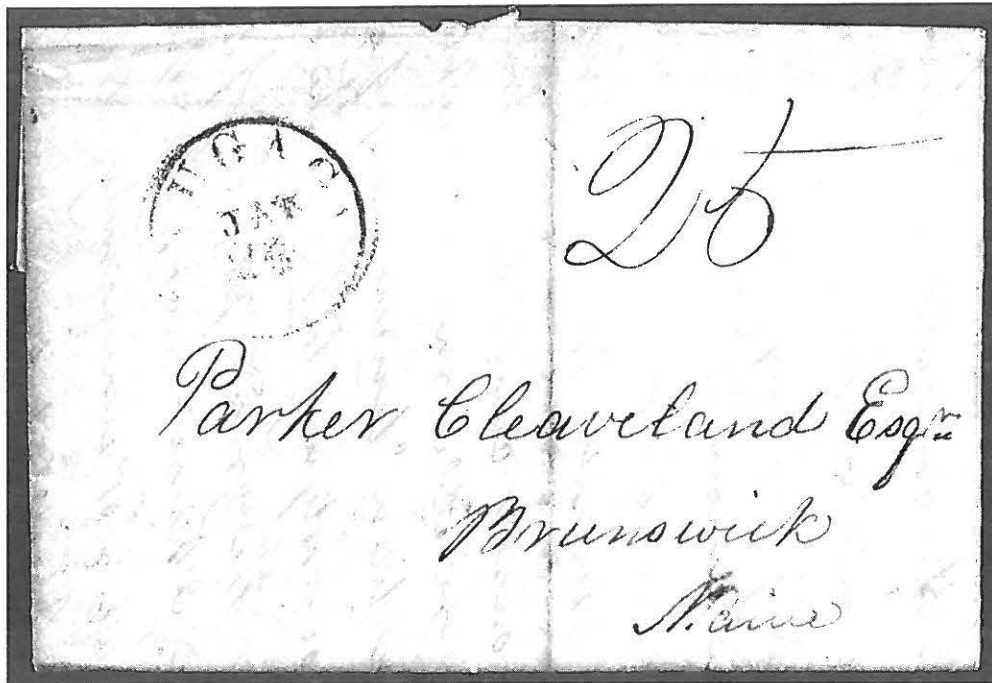 JAN
25
Parker Cleaveland Esqre
Brunswick
Maine